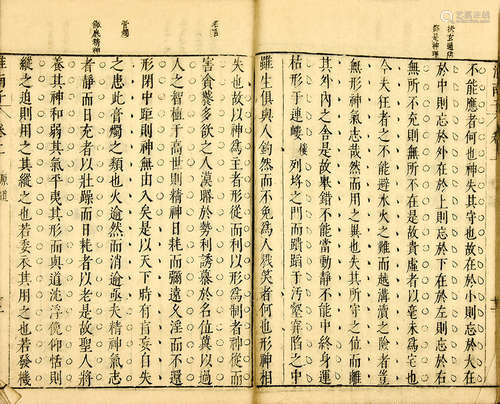 不能應者何也神失其守也故在於小則忘於大在
於中則忘於外在於上則忘於下在於左則忘於右
無所不充則無所不在是故貴虛者以毫末爲宅也
今夫狂者之不能避水火之難而越溝瀆之險者豈
無形神氣志哉然而用之異也失其所守之位而離
其外內之舍是故舉錯不能當動靜不能中終身運
枯形于連嶁列埒之門而蹪蹈于污壑穽陷之中
雖生俱與人鈞然而不免爲人戮笑者何也形神相
失也故以神爲主者形從而利以形爲制者神從而
害貪饕多欲之人漠睧於勢利誘慕於名位冀以過
人之智植于高世則精神日耗而彌遠久淫而不還
形閉中距則神無由入矣是以天下時有盲妄自失
之患此膏燭之類也火逾然而消逾亟夫精神氣志
者靜而日充者以壯躁而日耗者以老是故聖人將
養其神和弱其氣平夷其形而與道沈浮俛仰恬則
縱之迫則用之其縱之也若委衣其用之也若發機
淮南子 卷一 原道